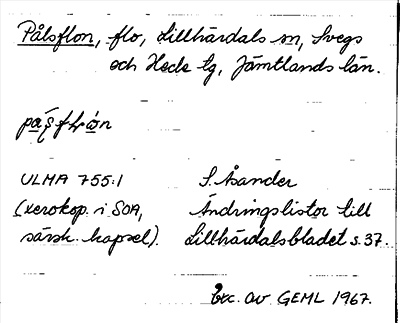 Pålsflon, flo, Lillhärdals sn, Svegs
och Heds tg, Jämtlands län.
ULMA 755:1 S. Åsander
(xerokop. i SOA, Ändringslistor till
särsk. kapsel). Lillhärdalsbladet s. 37.
Exc. av GEML 1967.